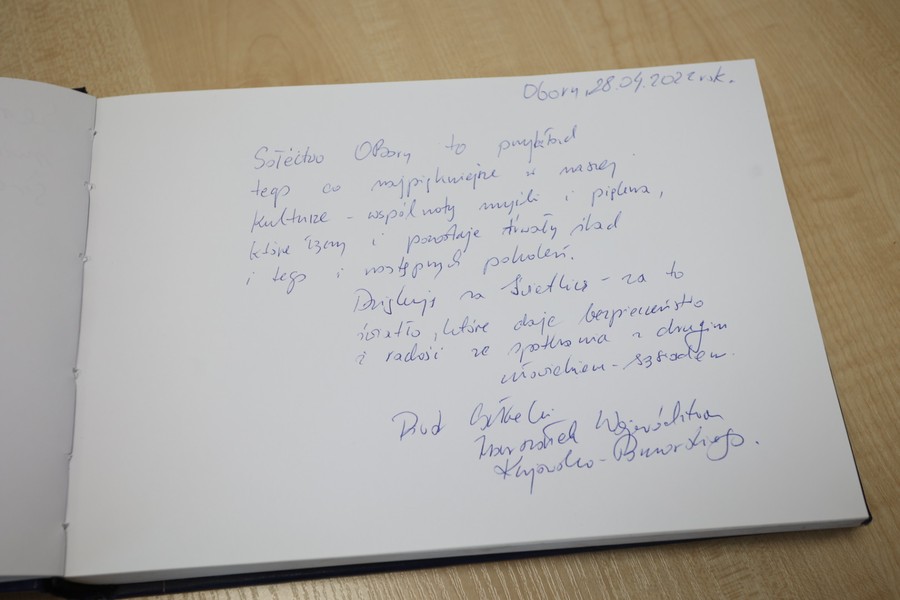 Obory, 28.04.2022 rok.
Sołectwo Obory to przykład
tego co najpiękniejsze w naszej
kulturze - wspólnoty myśli i piękna,
które łączy i pozostaje trwały ślad
i tego i następnych pokoleń.
Dziękuję za Świetlicę - za to
światło, które daje bezpieczeństwo
i radość ze spotkania z drugim
człowiekiem - sąsiadem.
Piotr
Marszałek Województwa
Kujawsko-Pomorskiego.